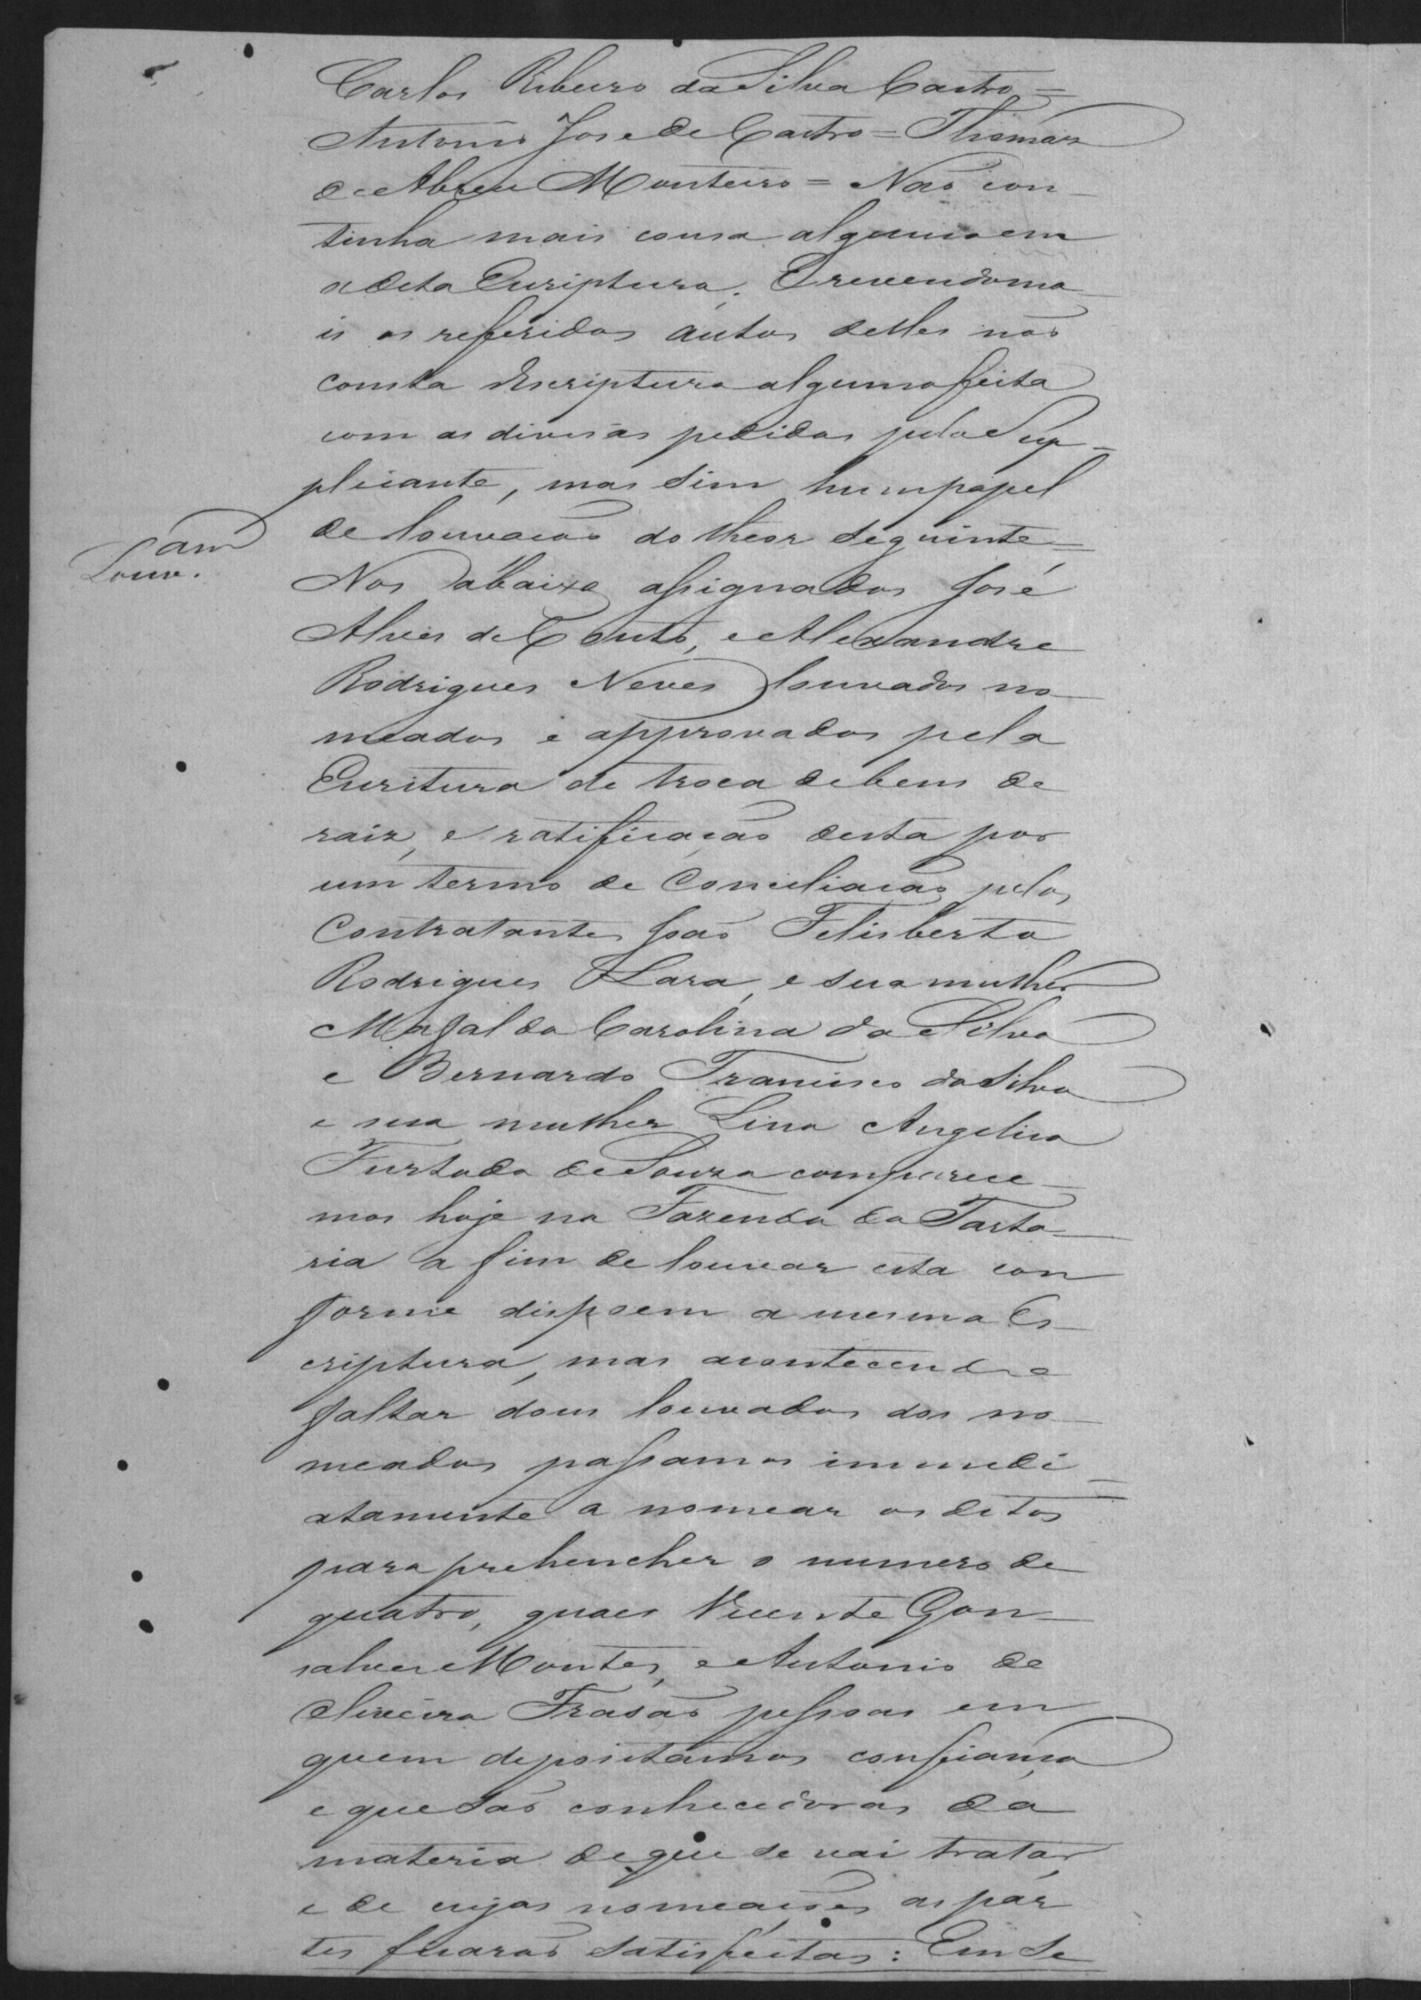 Carlos Ribeiro da Silva Castro =
Antonio Jose de Castro = Thomas
de Abreu Monteiro = Não con-
tinha mais cousa alguma em
a dita Escriptura. E revendo ma-
is os referidos autos delles não
consta Escriptura alguma feita
com as divisas pedidas pelo Sup-
plicante, mas sim hum papel
de louvação do theor seguinte =
Louv.am
Nos abaixo assignados José
Alves de Couto, e Alexandre
Rodrigues Neves louvados no-
meados e approvados pela
Escritura de troca de bens de
raiz, e ratificação desta por
um termo de Conciliação pelos
Contratantes João Felisberto
Rodrigues Lara, e sua mulher
Mafalda Carolina da Silva
e Bernardo Francisco da Silva
e sua mulher Lina Angelica
Furtado de Souza comparece-
mos hoje na Fazenda da Tarta-
ria a fim de louvar esta con
forme dispoem a mesma Es-
criptura, mas acontecendo
faltar dous louvados dos no-
meados passamos immedi-
atamente a nomear os ditos
para prehencher o numero de
quatro, quaes Vicente Gon-
salves Montes, e Antonio de
Oliveira Frasão pessoas em
quem depositamos confiança
e que são conhecedoras da
materia de que se vai tratar,
e de cujas nomeações as par
tes ficarão satisfeitas: Em se